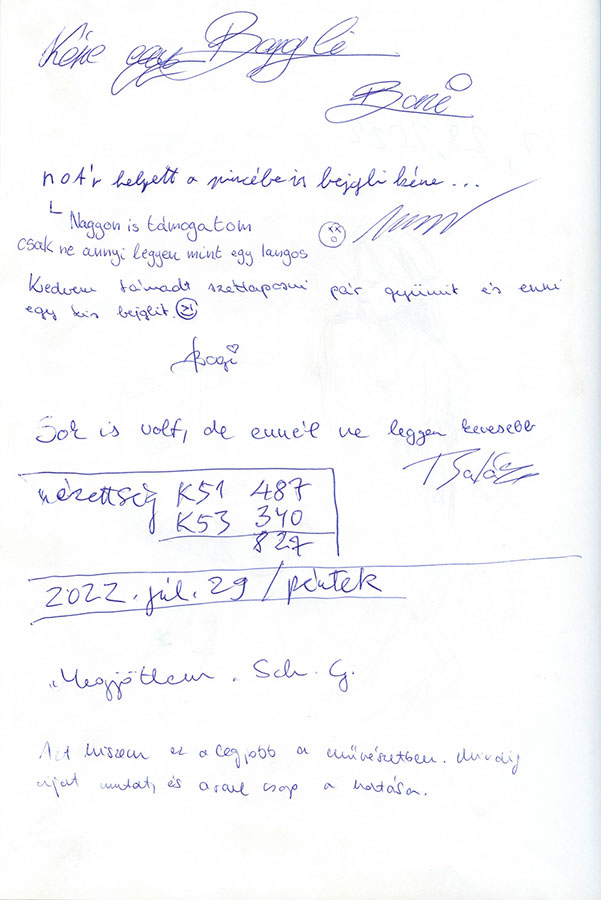 Kéne egy Baggli
Boni
notár helyett a pincébe is bejgli kéne...
Naggon is támogatom
csak ne annyi legyen mint egy langos
Kedvem támadt széttaposni pár gyümit és enni
egy kis bejglit.
Bogi
Sok is volt, de ennél ne leggen kevesebb
T Balázs
nézettség K51 487
K53 340
827
2022. júl. 29 / péntek
"Megjöttem. Sch. G.
Azt hiszem ez a legjobb a művészetben. Mindig
újat mutat, és arcul csap a hatása.